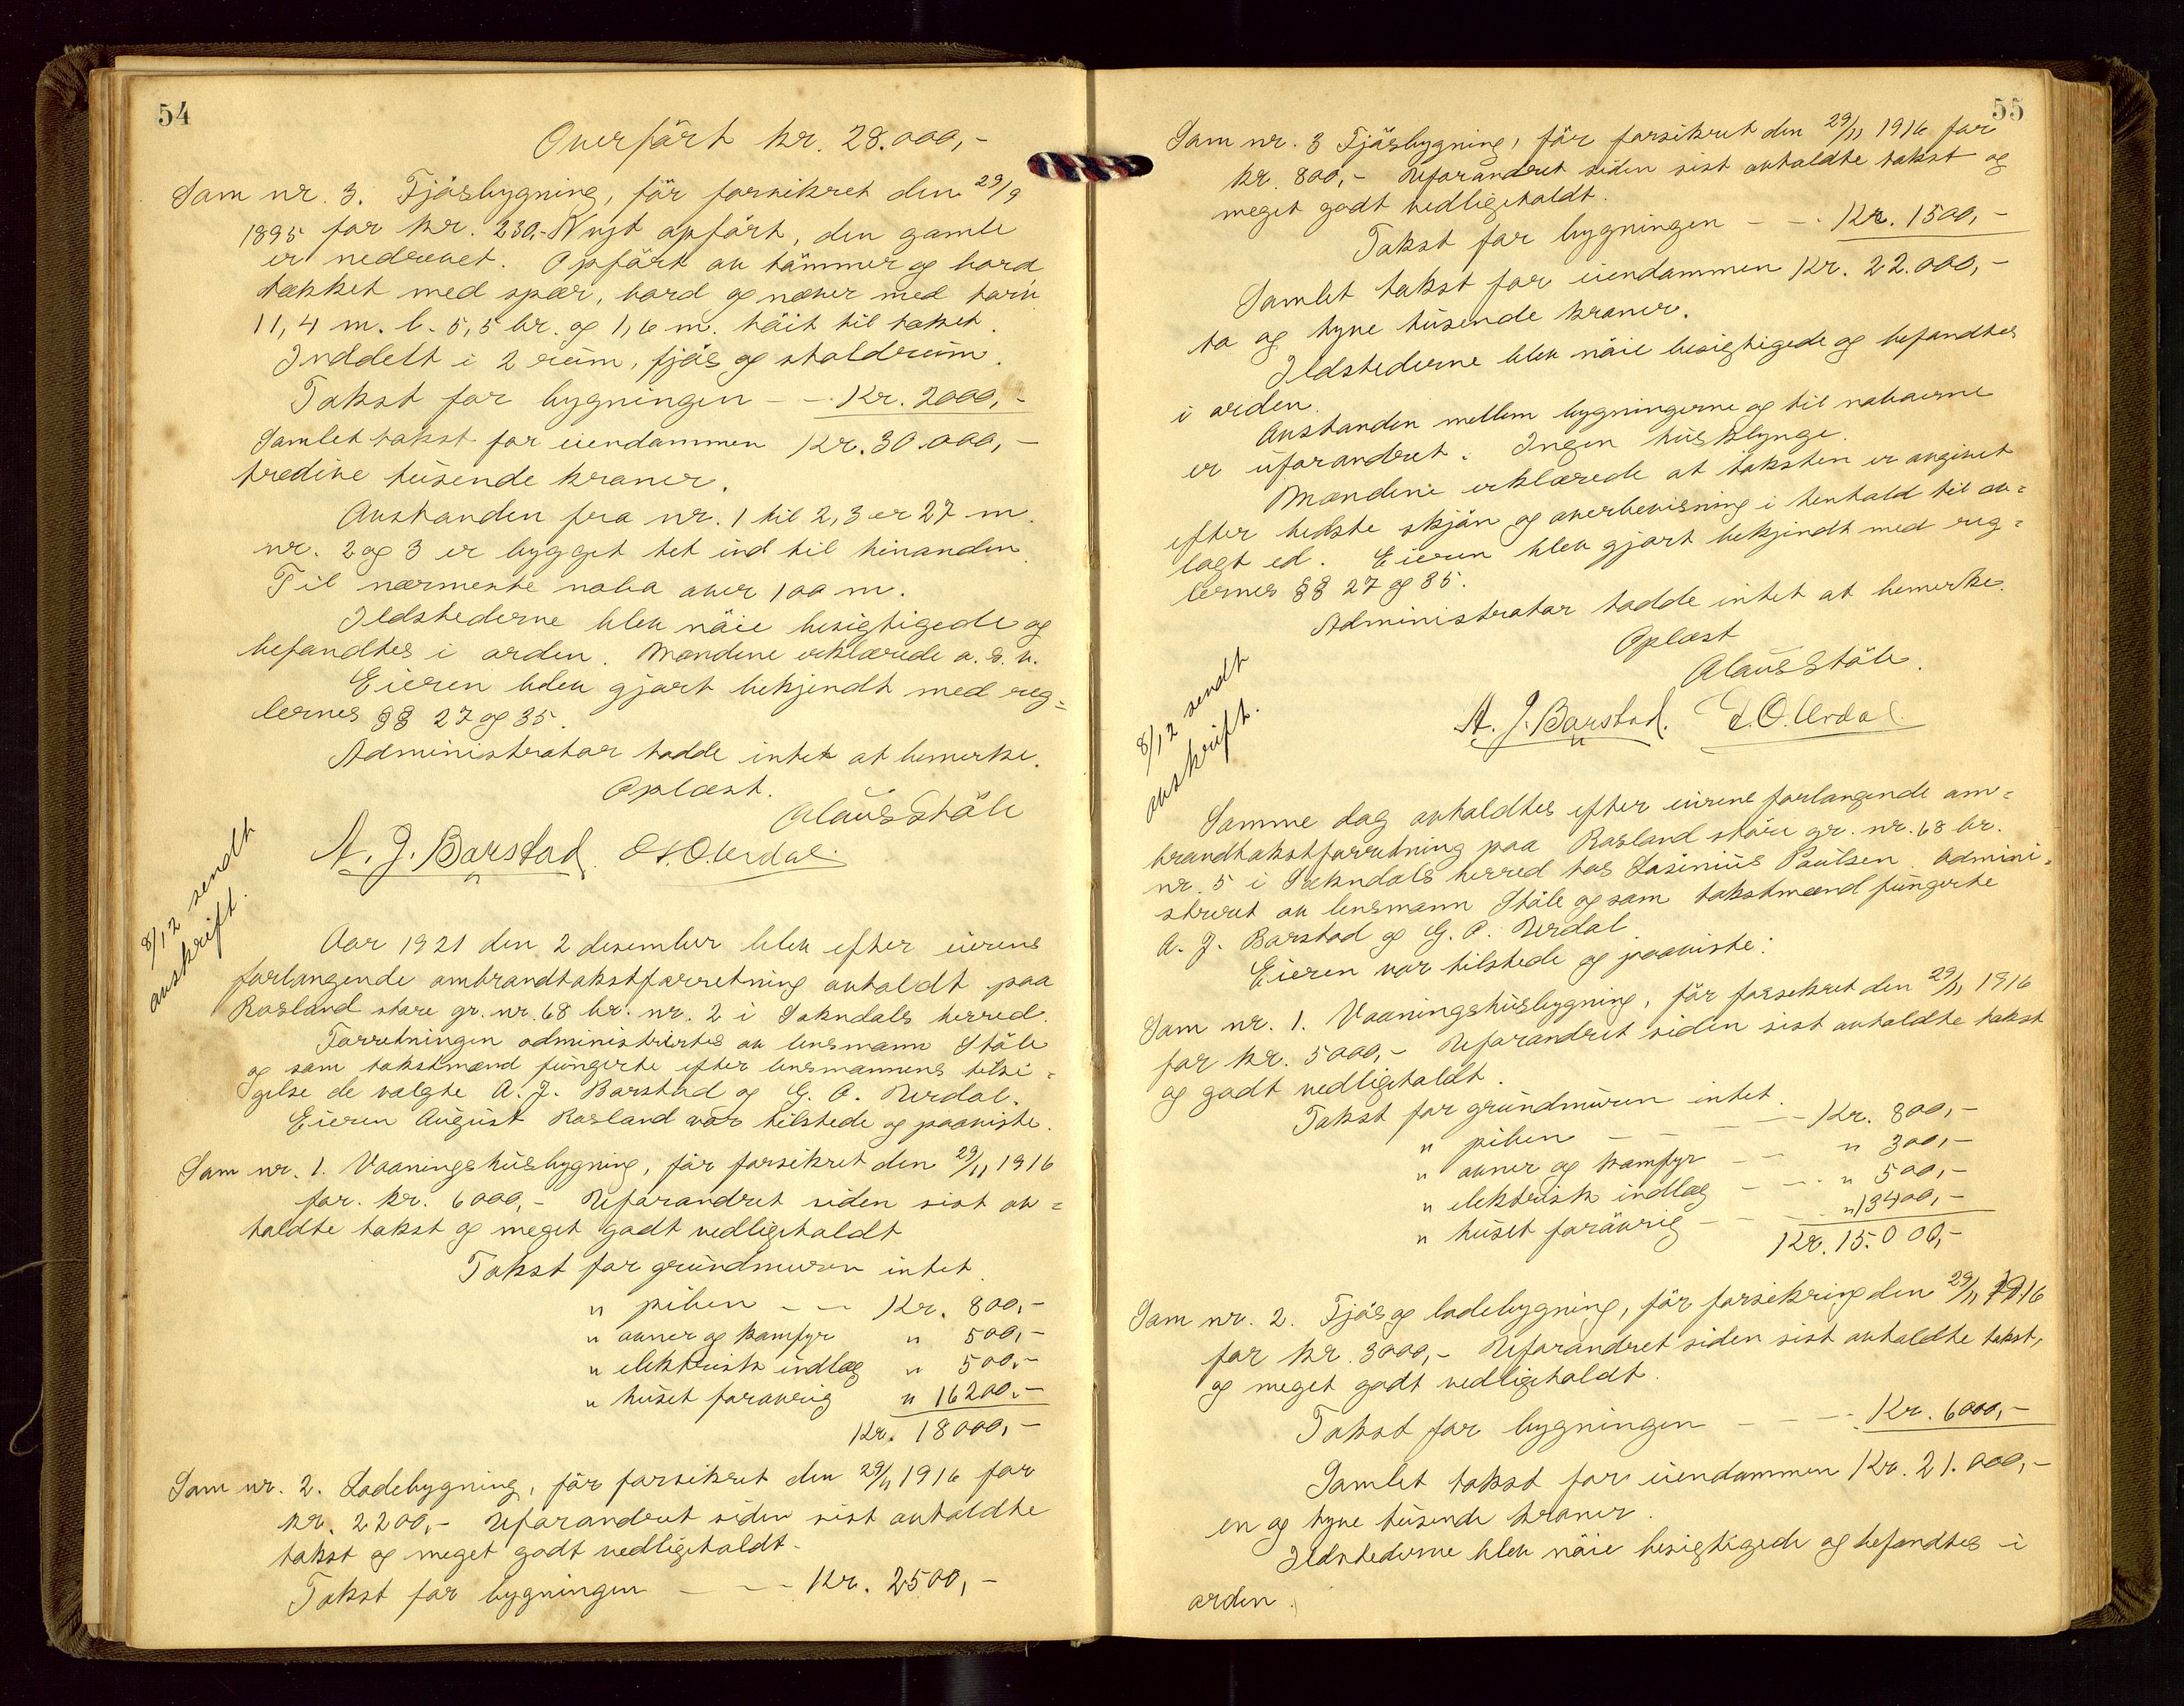 54
Overført kr. 28.000,-
Som nr. 3. Fjøsbygning, før forsikret den 29/9
1895 for kr. 230,- Nyt opført, den gamle
er nedrevet. Opført av tømmer og bord
tækket med spær, bord og næver med torv
11,4 m. l. 5,5 br. og 1,6 m. høit til taket.
Inddelt i 2 rum, fjøs og staldrum.
Takst for bygningen - - Kr. 2000,-
Samlet takst for eiendommen Kr. 30.000,-
tredive tusende kroner.
Avstanden fra nr. 1 til 2, 3 er 27 m.
nr. 2 og 3 er bygget tet ind til hinanden.
Til nærmeste nabo over 100 m.
Ildstederne blev nøie besigtigede og
befandtes i orden. Mændene erklærede o. s. v.
Eieren blev gjort bekjendt med reg=
lernes §§ 27 og 35.
Administrator hadde intet at bemerke.
Oplæst.
Claus Ståle
A. J. Barstad G. O. Urdal.
8/12 sendt
avskrift.
Aar 1921 den 2 desember blev efter eierens
forlangende ombrandtakstforretning avholdt paa
Rosland store gr. nr. 68 br. nr. 2 i Sokndals herred.
Forretningen administrertes av lensmann Ståle
og som takstmænd fungerte efter lensmannens tilsi=
gelse de valgte A. J. Barstad og G. O. Urdal.
Eieren August Rosland var tilstede og paaviste.
Som nr. 1. Vaaningshusbygning, før forsikret den 29/11 1916
for. kr. 6000,- Uforandret siden sist av=
holdte takst og meget godt vedligeholdt
Takst for grundmuren intet.
" piben - - Kr. 800,-
" ovner og komfyr " 500,-
" elektrisk indlæg " 500,-
" huset forøvrig " 16200,-
Kr. 18000,-
Som nr. 2. Ladebygning, før forsikret den 29/11 1916 for
kr. 2200,- Uforandret siden sist avholdte
takst og meget godt vedligeholdt.
Takst for bygningen - - - Kr. 2500,-
55
Som nr. 3 Fjøsbygning, før forsikret den 29/11 1916 for
kr. 800,- Uforandret siden sist avholdte takst og
meget godt vedligeholdt.
Takst for bygningen - - Kr. 1500,-
Samlet takst for eiendommen Kr. 22.000,-
to og tyve tusende kroner.
Ildstederne blev nøie besigtigede og befandtes
i orden.
Avstanden mellem bygningerne og til naboerne
er uforandret. Ingen husklynge.
Mændene erklærede at taksten er avgivet
efter bedste skjøn og overbevisning i henhold til av=
lagt ed. Eieren blev gjort bekjendt med reg=
lernes §§ 27 og 35.
Administrator hadde intet at bemerke.
Oplæst
Claus Ståle.
A. J. Barstad. G. O. Urdal
8/12 sendt
avskrift.
Samme dag avholdtes efter eierens forlangende om=
brandtakstforretning paa Rosland store gr. nr. 68 br.
nr. 5 i Sokndals herred hos Rasinius Paulsen. Admini=
strert av lensmann Ståle og som takstmænd fungerte
A. J. Barstad og G. O. Urdal
Eieren var tilstede og paaviste:
Som nr. 1. Vaaningshusbygning, før forsikret den 29/11 1916
for kr. 5000,- Uforandret siden sist avholdte takst
og godt vedligeholdt.
Takst for grundmuren intet.
" piben - - - - Kr. 800,-
" ovner og komfyr - - " 300,-
" elektrisk indlæg - - - " 500,-
" huset forøvrig - - - " 13400,-
Kr. 15.000,-
Som nr. 2. Fjøs og ladebygning, før forsikring den 29/11 1916
for kr. 3000,- Uforandret siden sist avholdte takst,
og meget godt vedligeholdt.
Takst for bygningen - - - Kr. 6000,-
Samlet takst for eiendommen Kr. 21.000,-
en og tyve tusende kroner.
Ildstederne blev nøie besigtigede og befandtes i
orden.